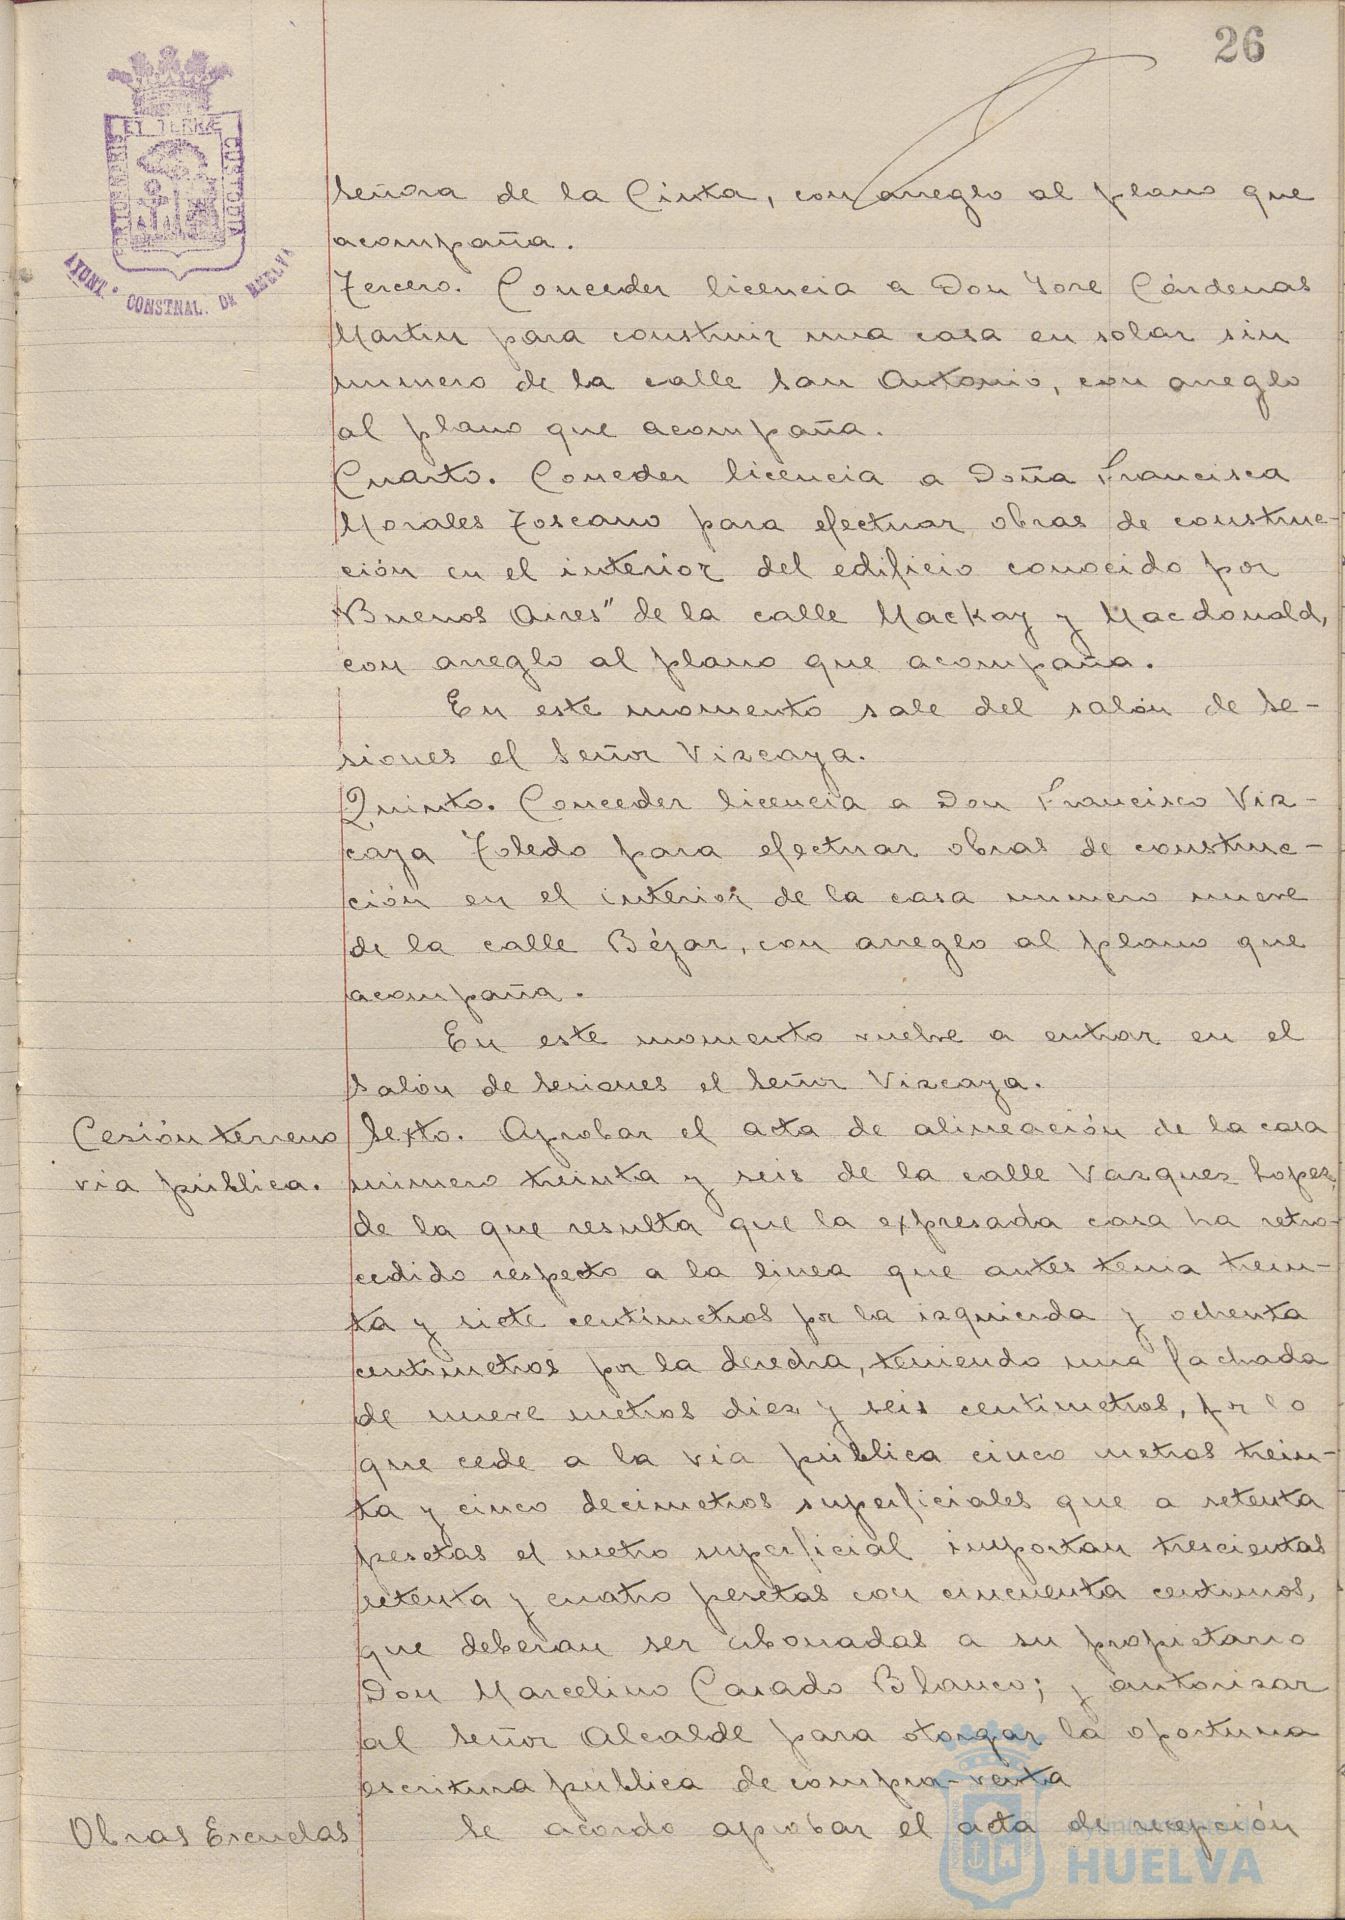 26
PORTUS MARIS
ET TERRÆ
CUSTODIA
AYUNT.º CONSTNAL. DE HUELVA
Señora de la Cinta, con arreglo al plano que
acompaña.
Tercero. Conceder licencia a Don José Cárdenas
Martin para construir una casa en solar sin
numero de la calle San Antonio, con arreglo
al plano que acompaña.
Cuarto. Conceder licencia a Doña Francisca
Morales Toscano para efectuar obras de construc-
ción en el interior del edificio conocido por
"Buenos Aires" de la calle Mackay y Macdonald,
con arreglo al plano que acompaña.
En este momento sale del salón de se-
siones el Señor Vizcaya.
Quinto. Conceder licencia a Don Francisco Viz-
caya Toledo para efectuar obras de construc-
ción en el interior de la casa numero nueve
de la calle Béjar, con arreglo al plano que
acompaña.
En este momento vuelve a entrar en el
salón de sesiones el Señor Vizcaya.
Cesión terreno
via pública.
Sexto. Aprobar el acta de alineación de la casa
número treinta y seis de la calle Vazquez Lopez,
de la que resulta que la expresada casa ha retro-
cedido respecto a la linea que antes tenia trein-
ta y siete centímetros por la izquierda y ochenta
centimetros por la derecha, teniendo una fachada
de nueve metros diez y seis centímetros, por lo
que cede a la via pública cinco metros trein-
ta y cinco decimetros superficiales que a setenta
pesetas el metro superficial importan trescientas
setenta y cuatro pesetas con cincuenta centimos,
que deberan ser abonadas a su propietario
Don Marcelino Casado Blanco; y autorizar
al Señor Alcalde para otorgar la oportuna
escritura pública de compra-venta
Obras Escuelas
Se acordo aprobar el acta de recepción
Ayuntamiento de
HUELVA